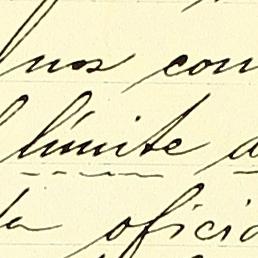 nos con
límite a
la oficio